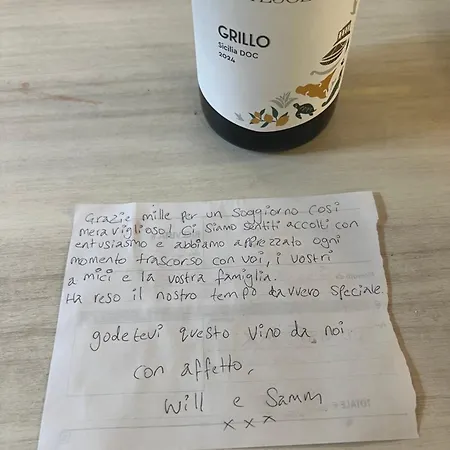 GRILLO
Sicilia DOC
2024
Grazie mille per un soggiorno così
meraviglioso! Ci siamo sentiti accolti con
entusiasmo e abbiamo apprezzato ogni
momento trascorso con voi, i vostri
amici e la vostra famiglia.
Ha reso il nostro tempo davvero speciale
godetevi questo vino da noi
con affetto,
Will e Samm
x x x